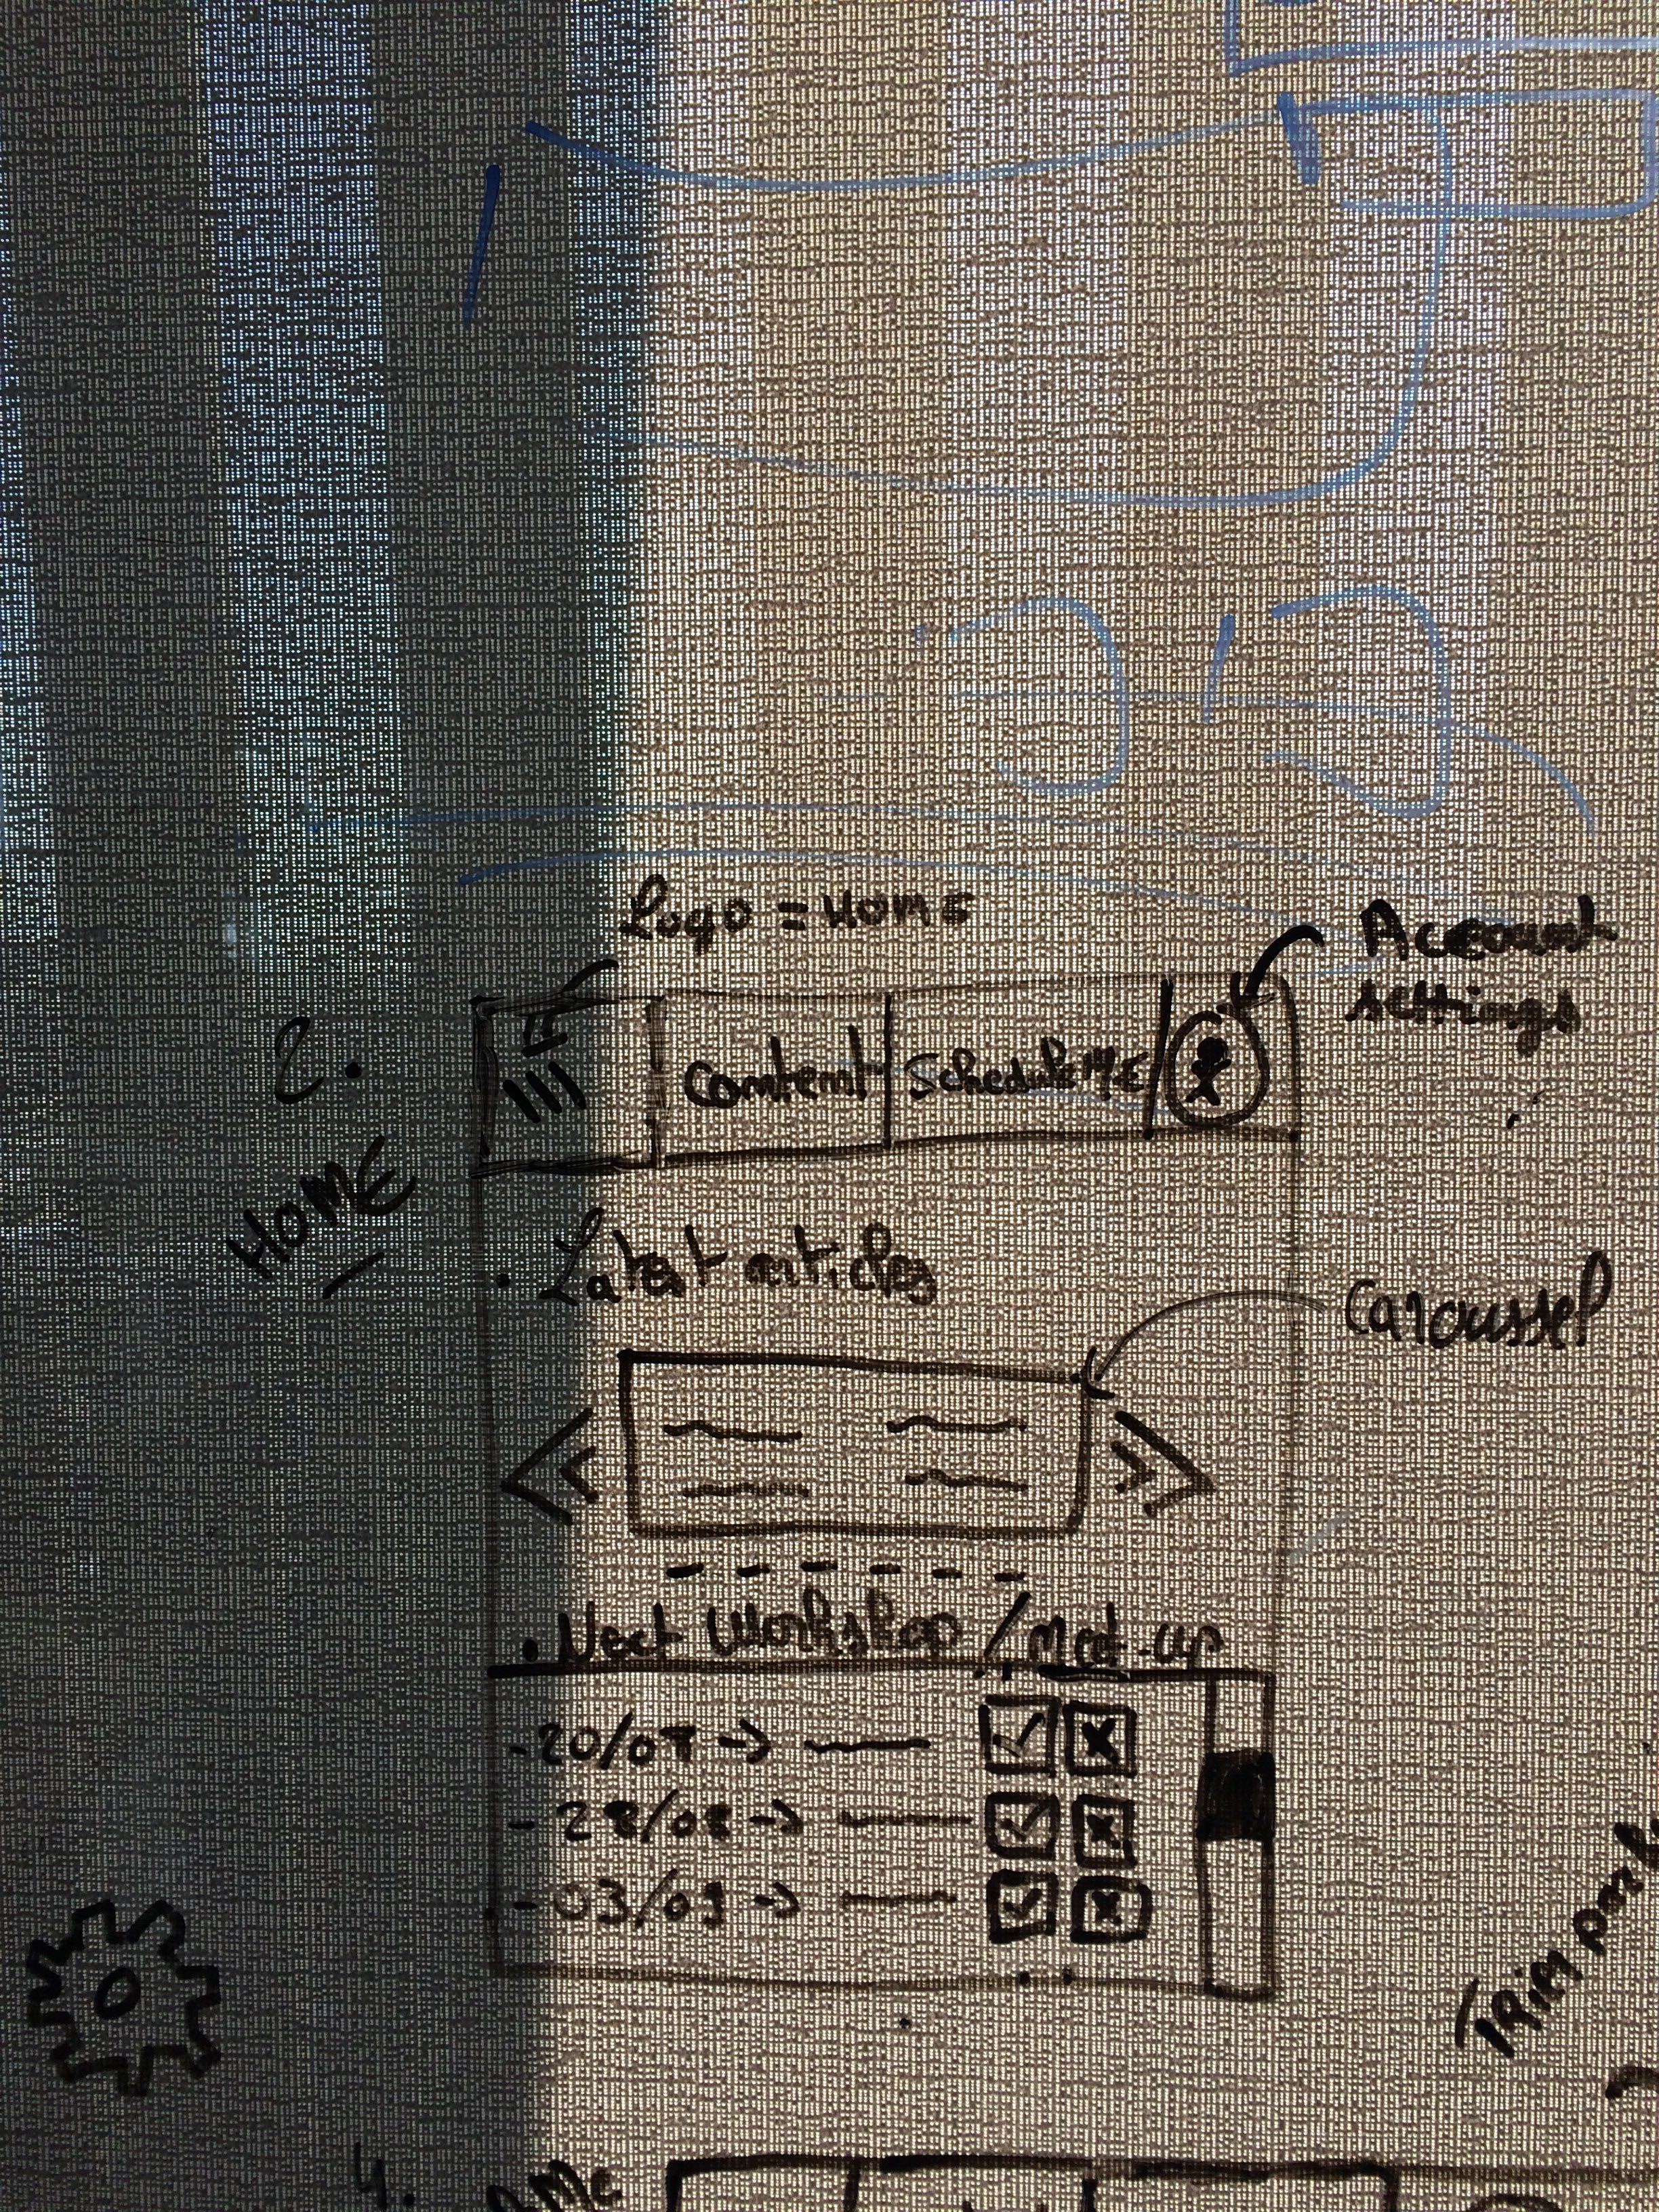 Logo = HOME
Account
settings
2.
HOME
Content
ScheduleME
. Latest articles
Caroussel
. Next Workshop / Meet-up
- 20/08 ->
- 28/08 ->
- 03/09 ->
4.